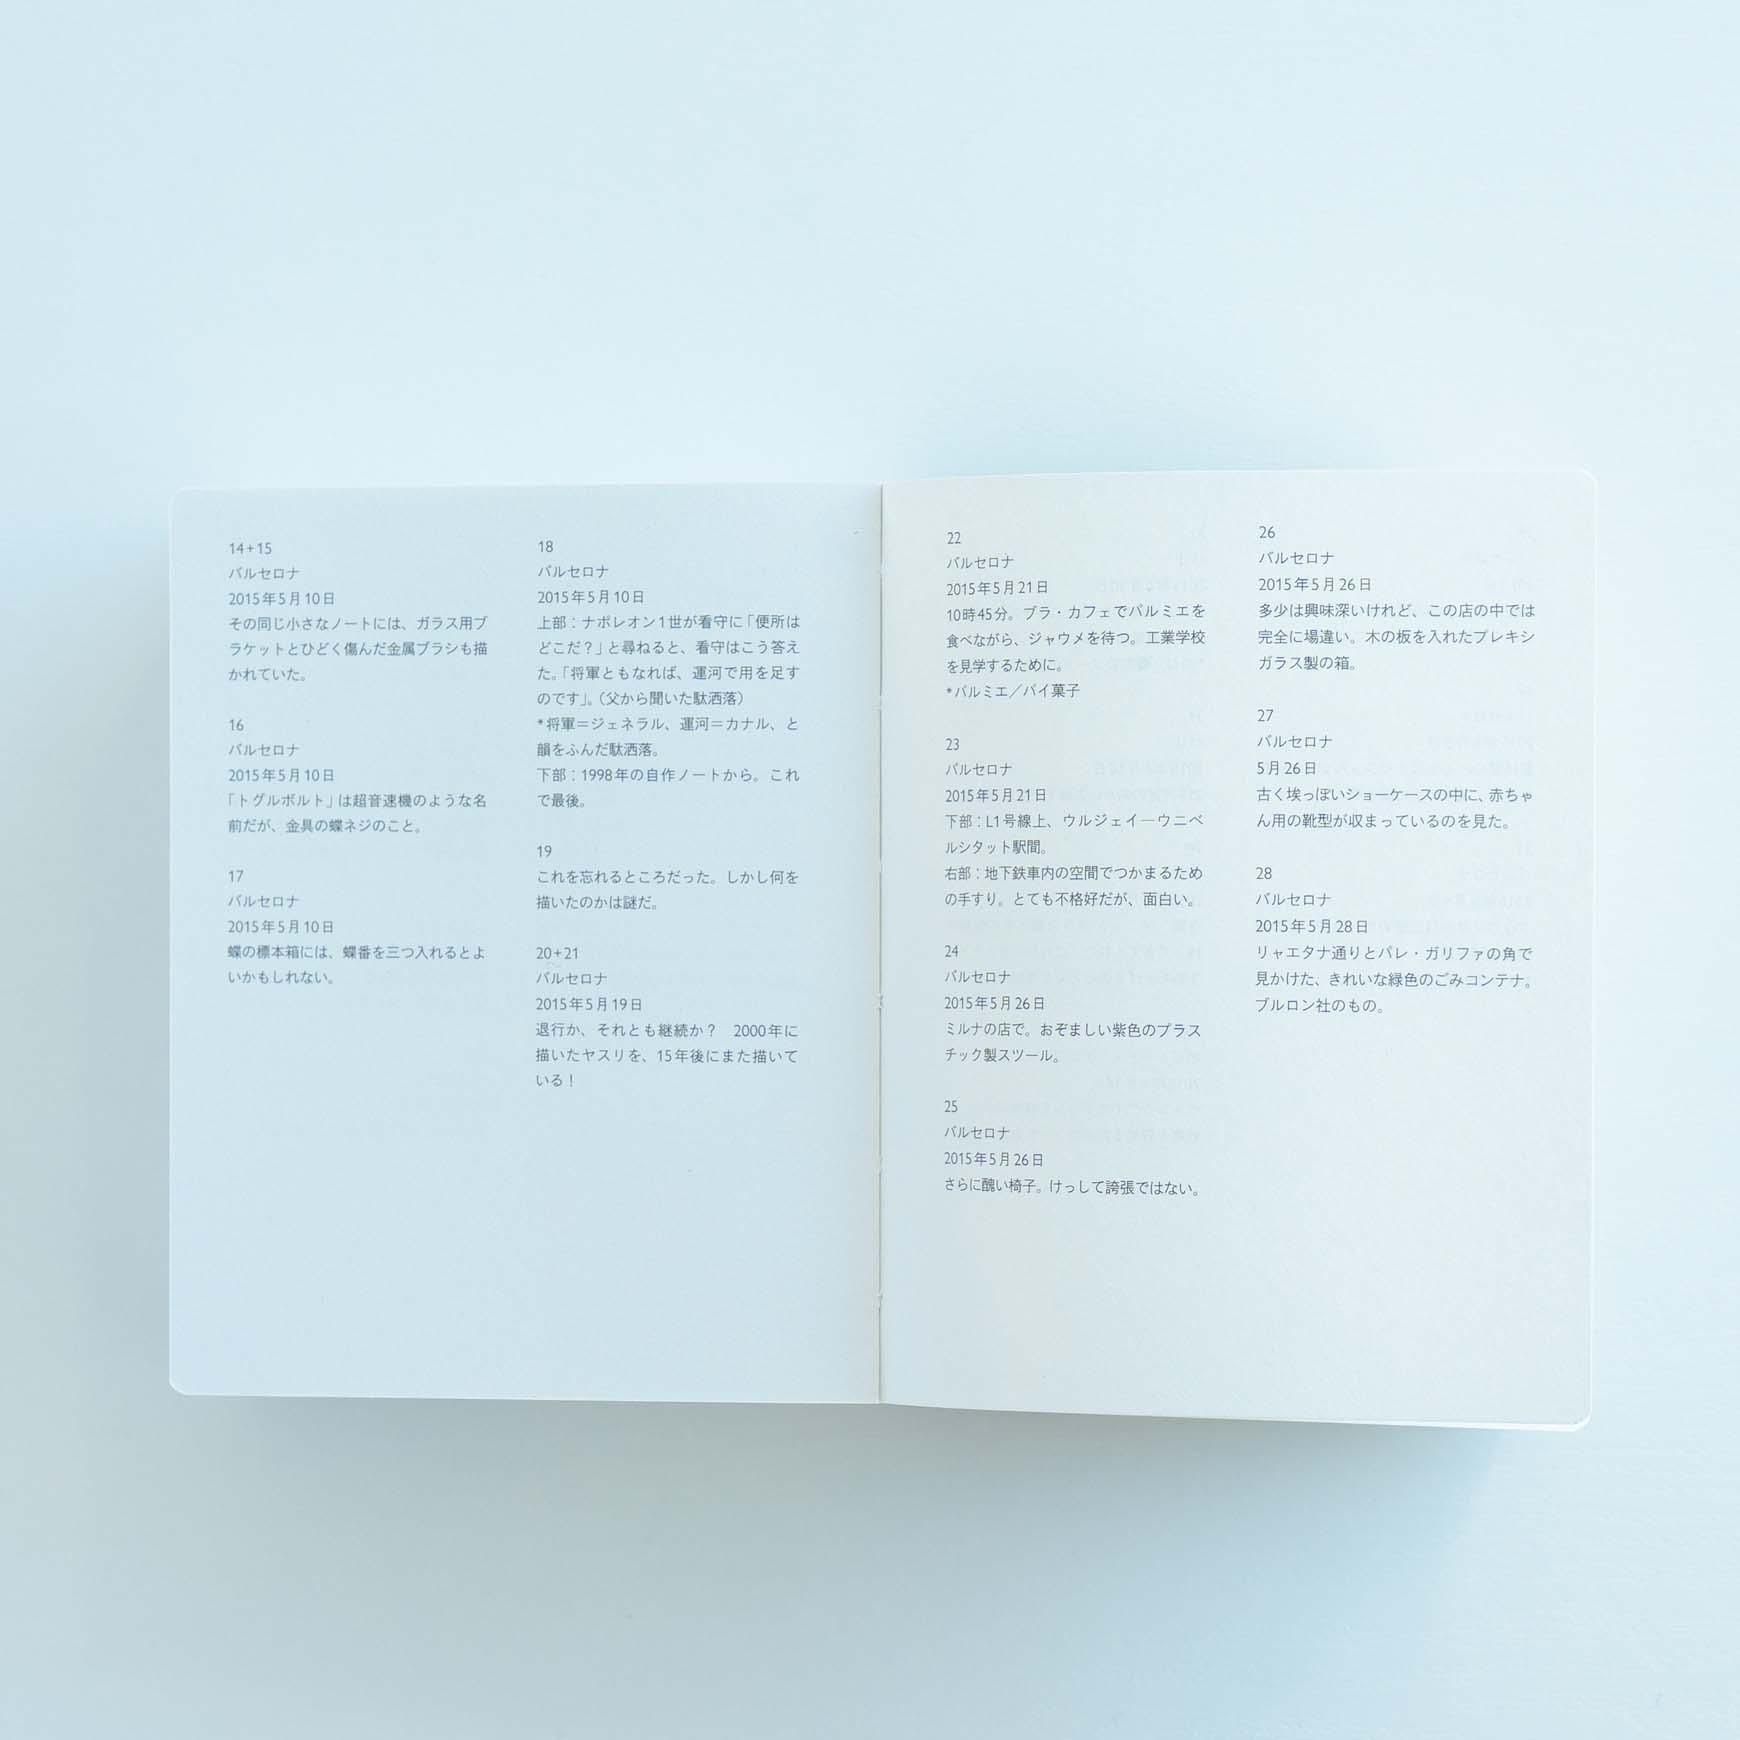 14+15
バルセロナ
2015年5月10日
その同じ小さなノートには、ガラス用ブ
ラケットとひどく傷んだ金属ブラシも描
かれていた。
16
バルセロナ
2015年5月10日
「トグルボルト」は超音速機のような名
前だが、金具の蝶ネジのこと。
17
バルセロナ
2015年5月10日
蝶の標本箱には、蝶番を三つ入れるとよ
いかもしれない。
18
バルセロナ
2015年5月10日
上部：ナポレオン1世が看守に「便所は
どこだ？」と尋ねると、看守はこう答え
た。「将軍ともなれば、運河で用を足す
のです」。（父から聞いた駄洒落）
*将軍＝ジェネラル、運河＝カナル、と
韻をふんだ駄洒落。
下部：1998年の自作ノートから。これ
で最後。
19
これを忘れるところだった。しかし何を
描いたのかは謎だ。
20+21
バルセロナ
2015年5月19日
退行か、それとも継続か？　2000年に
描いたヤスリを、15年後にまた描いて
いる！
22
バルセロナ
2015年5月21日
10時45分。ブラ・カフェでパルミエを
食べながら、ジャウメを待つ。工業学校
を見学するために。
*パルミエ／パイ菓子
23
バルセロナ
2015年5月21日
下部：L1号線上、ウルジェイ―ウニベ
ルシタット駅間。
右部：地下鉄車内の空間でつかまるため
の手すり。とても不格好だが、面白い。
24
バルセロナ
2015年5月26日
ミルナの店で。おぞましい紫色のプラス
チック製スツール。
25
バルセロナ
2015年5月26日
さらに醜い椅子。けっして誇張ではない。
26
バルセロナ
2015年5月26日
多少は興味深いけれど、この店の中では
完全に場違い。木の板を入れたプレキシ
ガラス製の箱。
27
バルセロナ
5月26日
古く埃っぽいショーケースの中に、赤ちゃ
ん用の靴型が収まっているのを見た。
28
バルセロナ
2015年5月28日
リャエタナ通りとパレ・ガリファの角で
見かけた、きれいな緑色のごみコンテナ。
ブルロン社のもの。